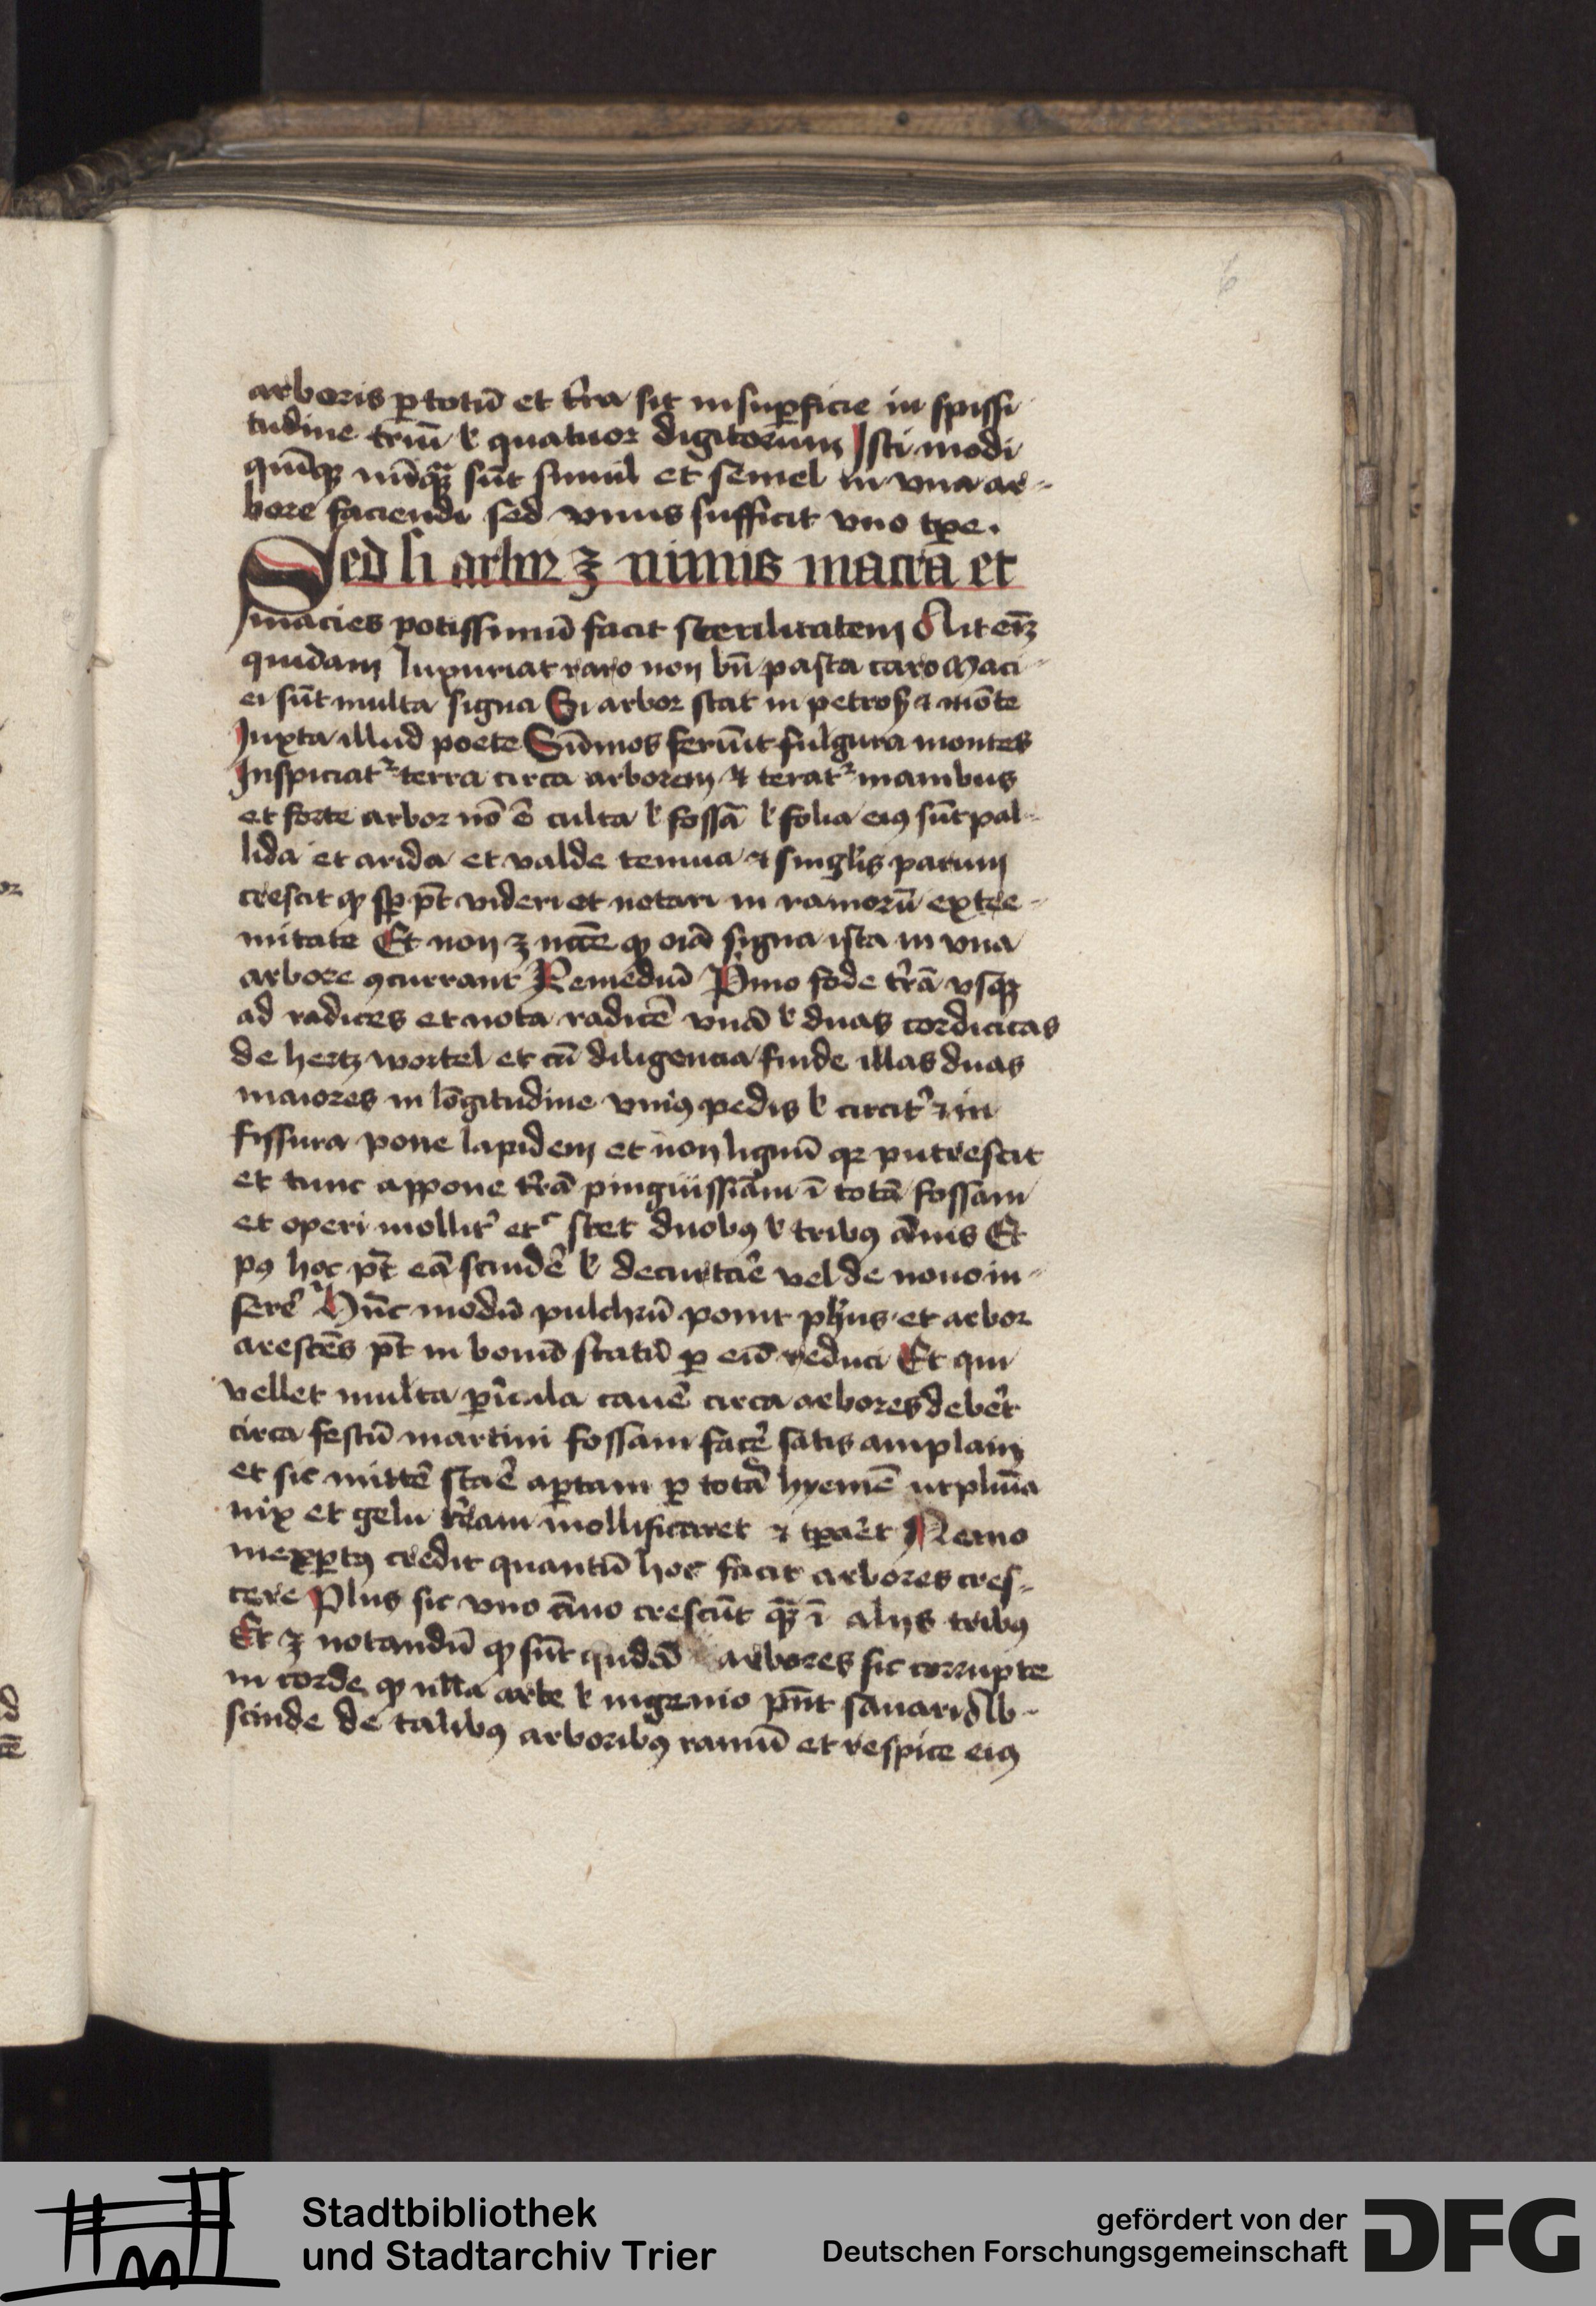 6
arboris ꝑ totū et t̉ra sit in suꝑficie in spissi
tudine triū ł quatuor digitorum Isti modi
quīqꝫ nūqꝫ sūt simul et semel in vna ar-
bore faciendi sed vnus sufficit vno tꝑe.
Sed si arbor ꝫ nimis macra et
macies potissimū facit sterilitatem Ait em̄
quidam luxuriat raro non bn̄ pasta caro Maci-
ei sūt multa signa Si arbor stat in petrosꝭ ⁊ mōte
Juxta illud poete Sūmos feriūt fulgura montes
Inspiciat᷑ terra circa arborem ⁊ terat᷑ manibus
et forte arbor nō ē culta ł fossa ł folia eiꝯ sūt pal-
lida et arida et valde tenuia ⁊ singl̉is parum
crescit ꝙ sꝑ pt̄ videri et notari in ramorū extre-
mitate Et non ꝫ ncc̄e ꝙ oīa signa ista in vna
arbore ꝯcurrant Remediū P̉mo fode t̉rā vsqꝫ
ad radices et nota radicē vnā ł duas cordicitas
de hertz wortel et cū diligencia finde illas duas
maiores in lōgitudine vniꝯ pedis ł circit̉ ⁊ in
fissura pone lapidem et non lignū qꝛ putrescit
et tunc appone t̉rā pinguissimam ī totā fossam
et operi mollit̉ etc stet duobꝯ ł tribꝯ ānis Et
pꝯ hoc pt̄ eā scindē ł decurtarē vel de nouo in-
serē Hūc modū pulchrū ponit ph̉us et arbor
arescēs pt̄ in bonū statū ꝑ eū reduci Et qui
vellet multa ꝑicula cauē circa arbores debēt
circa festū martini fossam facē satis amplam
et sic mittē starē aꝑtam ꝑ totā hyemē ut pluuia
nix et gelu t̉ram mollificaret ⁊ tꝑaret Nemo
inexꝑtꝯ credit quantū hoc facit arbores cres-
cere Plus sic vno āno crescūt qꝫ ī alijs tribꝯ
Et ꝫ notandū ꝙ sūt quedā arbores sic corrupte
in corde ꝙ nlla arte ł ingenio pn̄t sanari Ab-
scinde de talibꝯ arboribꝯ ramū et respice eiꝯ
Stadtbibliothek
und Stadtarchiv Trier
gefördert von der
Deutschen Forschungsgemeinschaft
DFG